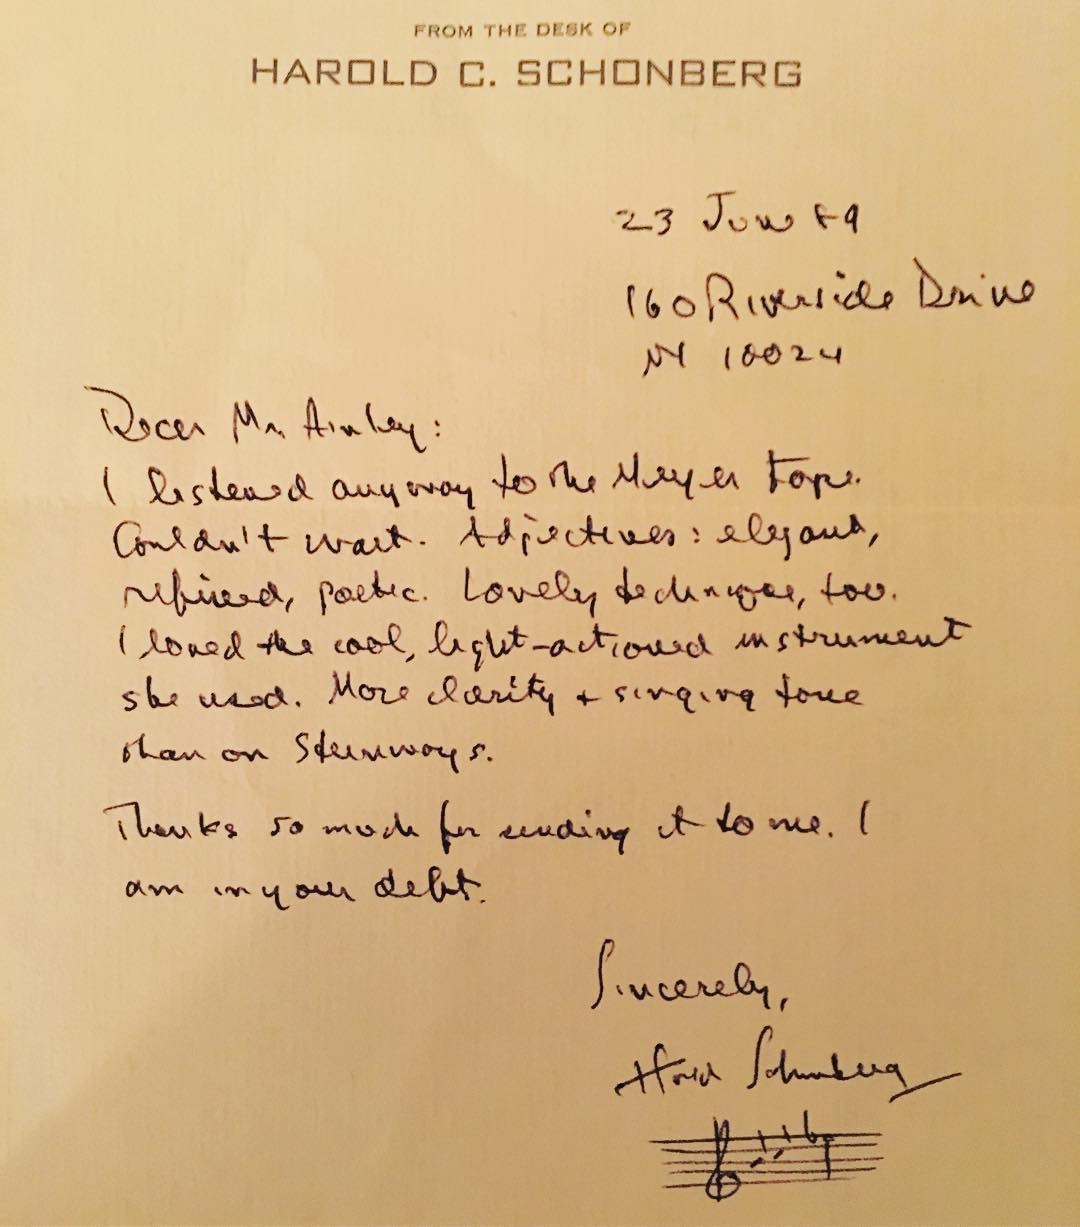 FROM THE DESK OF
HAROLD C. SCHONBERG
23 June 89
160 Riverside Drive
NY 10024
Dear Mr. Ainley:
I listened anyway to the Meyer tape.
Couldn't wait. Adjectives: elegant,
refined, poetic. Lovely technique, too.
I loved the cool, light-actioned instrument
she used. More clarity + singing tone
than on Steinways.
Thanks so much for sending it to me. I
am in your debt.
Sincerely,
Harold Schonberg